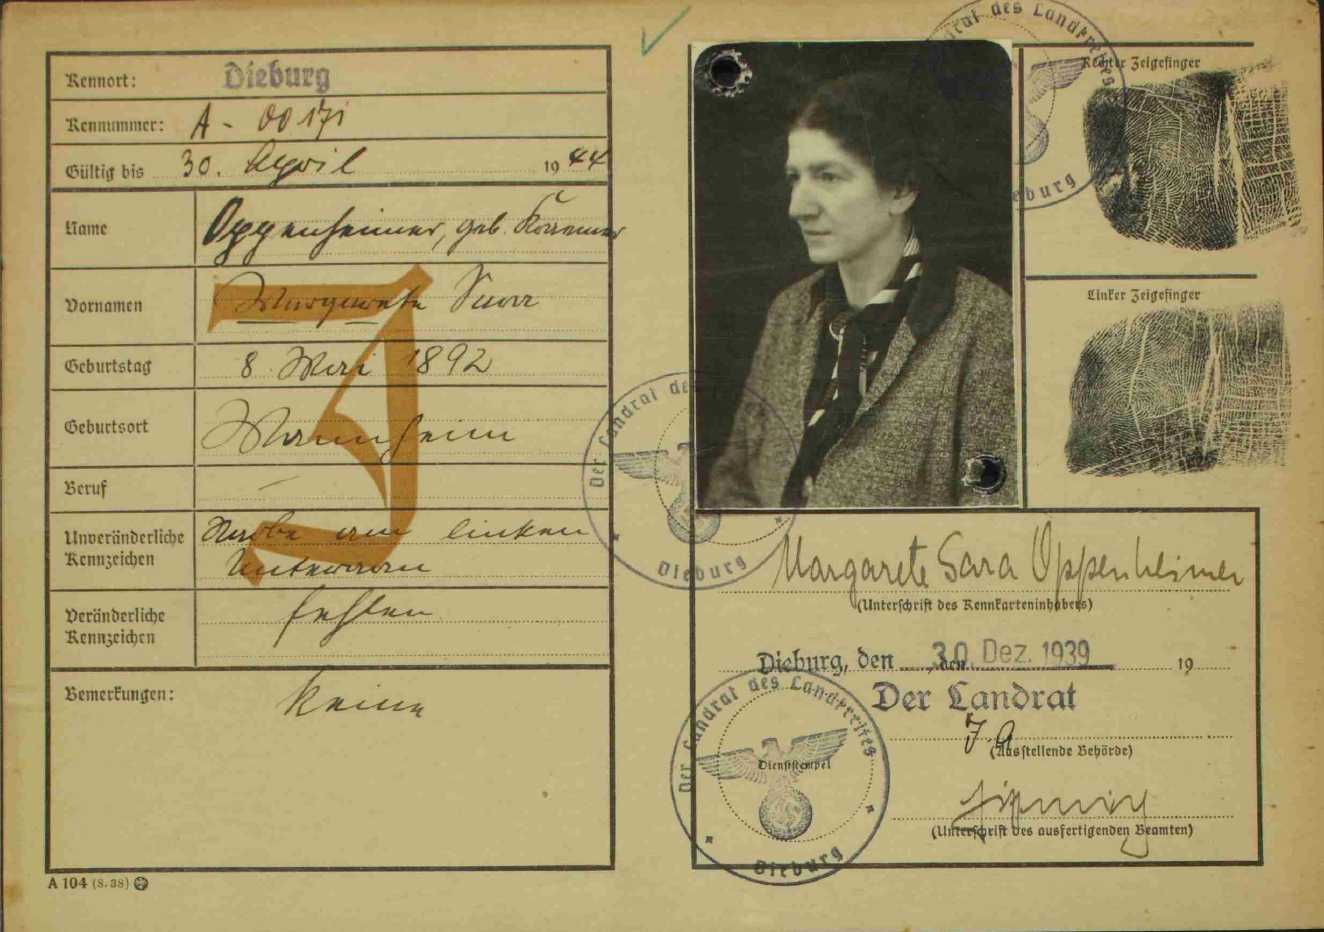 Kennort: Dieburg
Kennummer: A - 00171
Gültig bis 30. April 1944
Name Oppenheimer, geb.
Vornamen Margarete Sara
Geburtstag 8 Mai 1892
Geburtsort Mannheim
Beruf –
Unveränderliche Kennzeichen Narbe am linken
Unterarm
Veränderliche Kennzeichen fehlen
Bemerkungen: keine
J
A 104 (8.38)
Rechter Zeigefinger
Linker Zeigefinger
Der Landrat des Landkreises
Dieburg
Der Landrat des
Dieburg
Margarete Sara Oppenheimer
(Unterschrift des Kennkarteninhabers)
Dieburg, den 30. Dez. 1939 19
Der Landrat
J.A
(Ausstellende Behörde)
Der Landrat des Landkreises
Dienststempel
Dieburg
(Unterschrift des ausfertigenden Beamten)